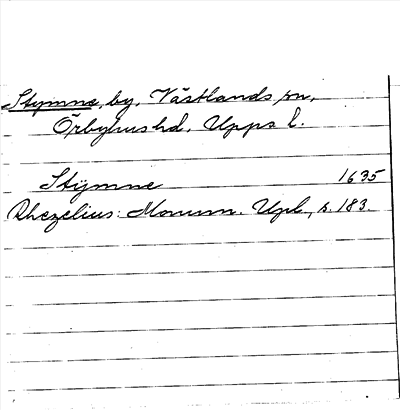 Stymne, by, Västlands sn,
Örbyhus hd, Upps l.
Stÿmne 1635
Rhezelius: Monum. Upl., s. 183.